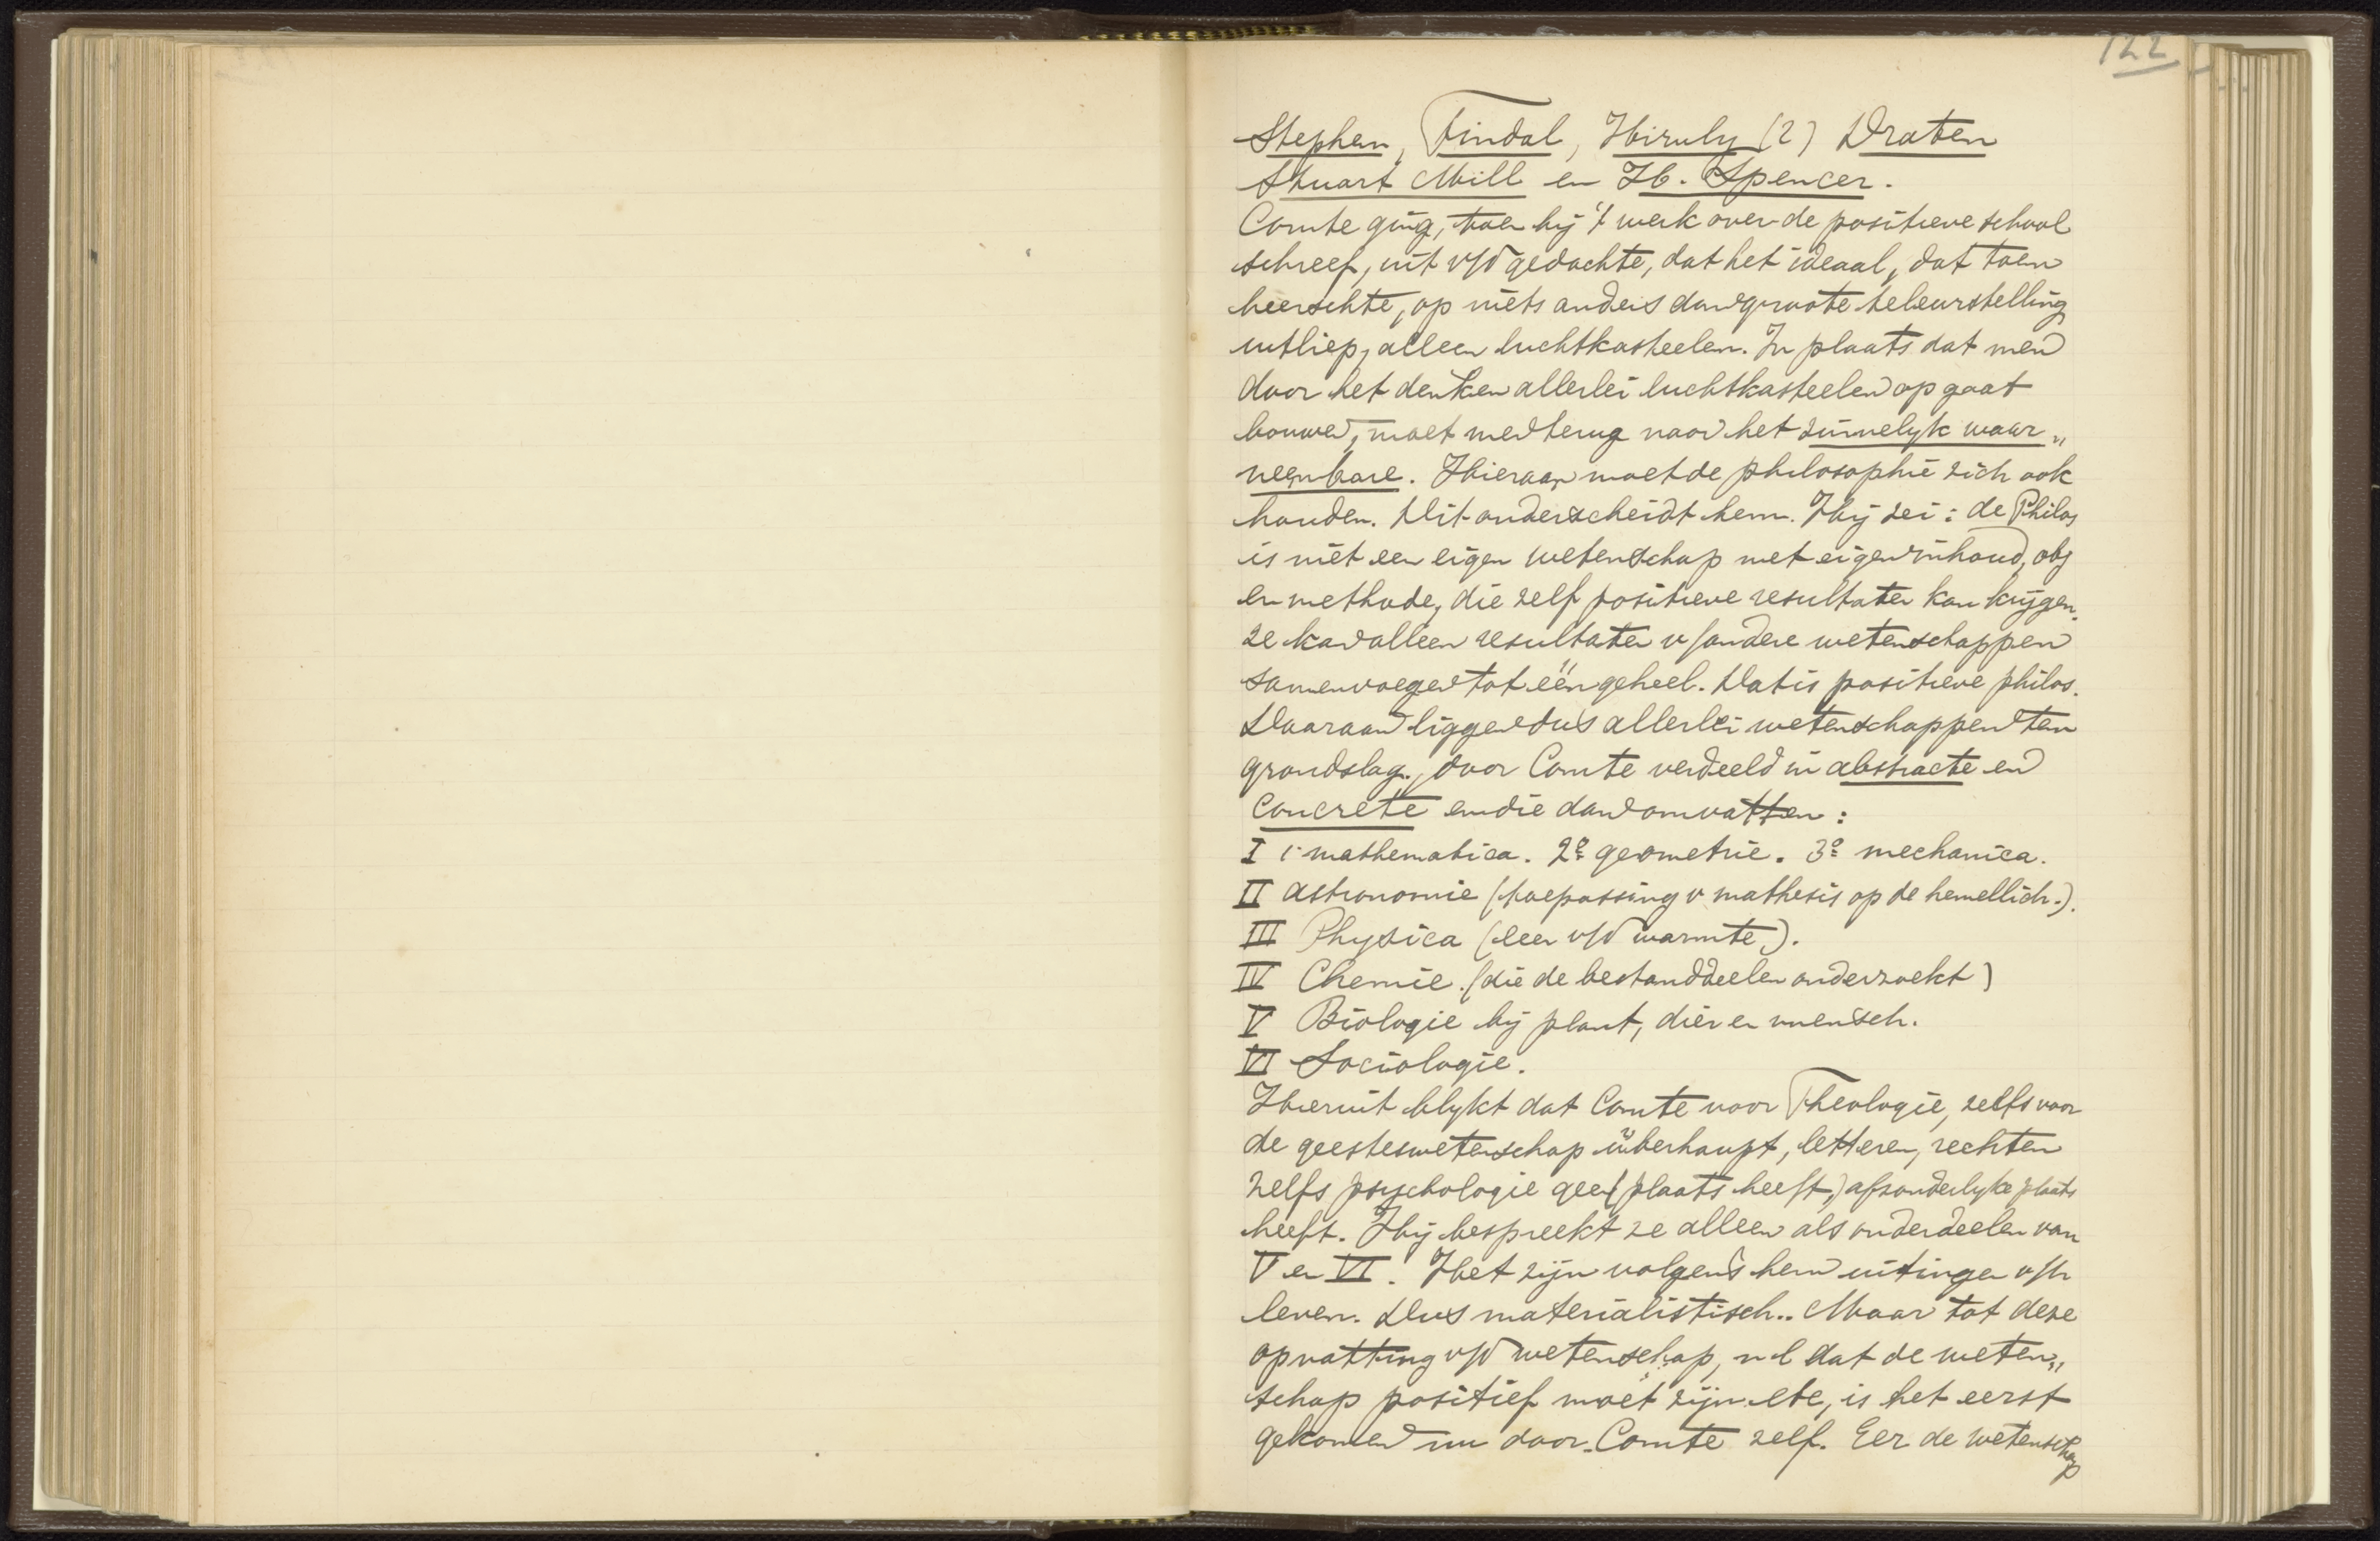 122
Stephen, Tindal, Hiruly (2) Draten
Stuart Mill en H. Spencer.
Comte ging, toen hij 't werk over de positieve school
schreef, uit v/d gedachte, dat het ideaal, dat toen
heerschte, op niets anders dan groote teleurstelling
uitliep, alleen luchtkasteelen. In plaats dat men
door het denken allerlei luchtkasteelen op gaat
bouwen, moet men terug naar het zinnelyk waar„
neembare. Hieraan moet de philosophie zich ook
houden. Dit onderscheidt hem. Hij zei: de Philos
is niet een eigen wetenschap met eigen inhoud, obj
en methode, die zelf positieve resultaten kan krijgen.
ze kan alleen resultaten v/andere wetenschappen
samenvoegen tot één geheel. Dat is positieve philos.
Daaraan liggen dus allerlei wetenschappen ten
grondslag, door Comte verdeeld in abstracte en
concrete en die dan omvatten:
I 1º mathematica. 2º geometrie. 3º mechanica.
II astronomie (toepassing v mathesis op de hemellich.).
III Physica (leer v/d warmte).
IV Chemie. (die de bestanddeelen onderzoekt)
V Biologie bij plant, dier en mensch.
VI Sociologie.
Hieruit blykt dat Comte voor Theologie, zelfs voor
de geesteswetenschap überhaupt, letteren, rechten
zelfs psychologie geen (plaats heeft,) afzonderlyke plaats
heeft. Hij bespreekt ze alleen als onderdeelen van
V en VI. Het zijn volgens hem uitingen v/h
leven. Dus materialistisch.. Maar tot deze
opvatting v/d wetenschap, nl dat de weten„
schap positief moet zijn etc, is het eerst
gekomen nu door Comte zelf. Eer de wetenschap